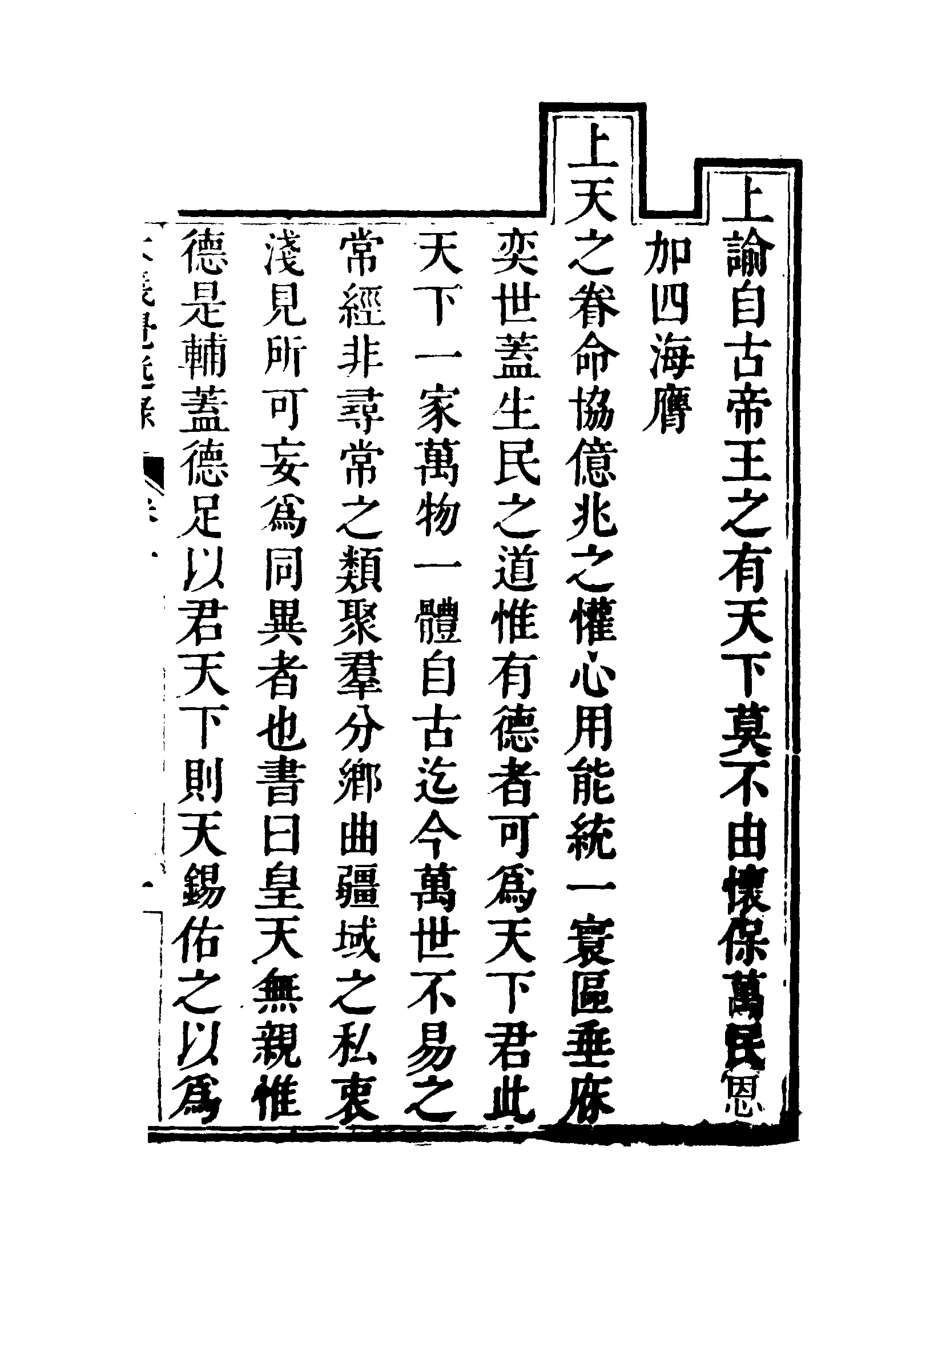 上諭自古帝王之有天下莫不由懷保萬民恩
加四海膺
上天之眷命協億兆之懽心用能統一寰區垂庥
奕世蓋生民之道惟有德者可爲天下君此
天下一家萬物一體自古迄今萬世不易之
常經非尋常之類聚羣分鄉曲疆域之私衷
淺見所可妄爲同異者也書曰皇天無親惟
德是輔蓋德足以君天下則天錫佑之以爲
大義覺迷錄 卷一 一